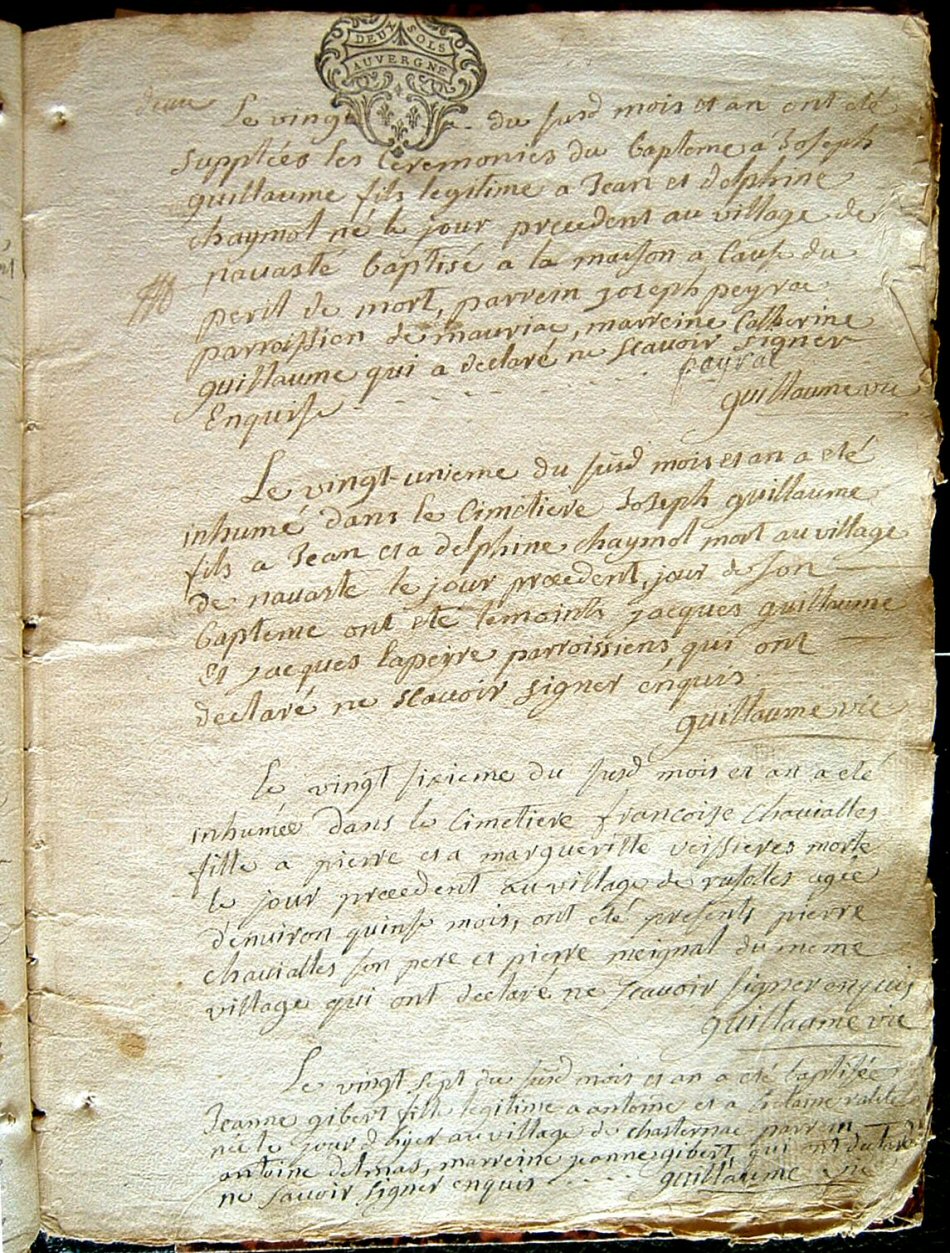 DEUX SOLS
AUVERGNE
Le vingt du susd mois et an ont eté
supplées les Ceremonies du bapteme a Joseph
guillaume fils legitime a Jean et delphine
chaymol né le jour precedent au village de
navaste baptisé a la maison a cause du
peril de mort, parrein joseph peyrac
parroissien de mauriac, marreine Catherine
guillaume qui a declaré ne scavoir signer
Enquise peyrac
guillaume vic
Le vingt-unieme du susd mois et an a eté
inhumé dans le Cimetiere Joseph guillaume
fils a Jean et a delphine chaymol mort au village
de navaste le jour precedent, jour de son
bapteme ont eté temoints jacques guillaume
Et jacques Lapeyre parroissiens qui ont
declaré ne scavoir signer enquis.
guillaume vic
Le vingt sixieme du susd mois et an a eté
inhumée dans le Cimetiere francoise chavialles
fille a pierre et a margueritte veissieres morte
le jour precedent au village de rasolles agée
d'environ quinse mois, ont eté presents pierre
chavialles son pere et pierre meignal du meme
village qui ont declaré ne scavoir signer enquis
guillaume vic
Le vingt sept du susd mois et an a eté baptisée
Jeanne gibert fille legitime a antoine et a
née le jour d'hyer au village de chasternac parrein
antoine delmas, marreine jeanne gibert, qui ont declaré
ne savoir signer enquis guillaume vic